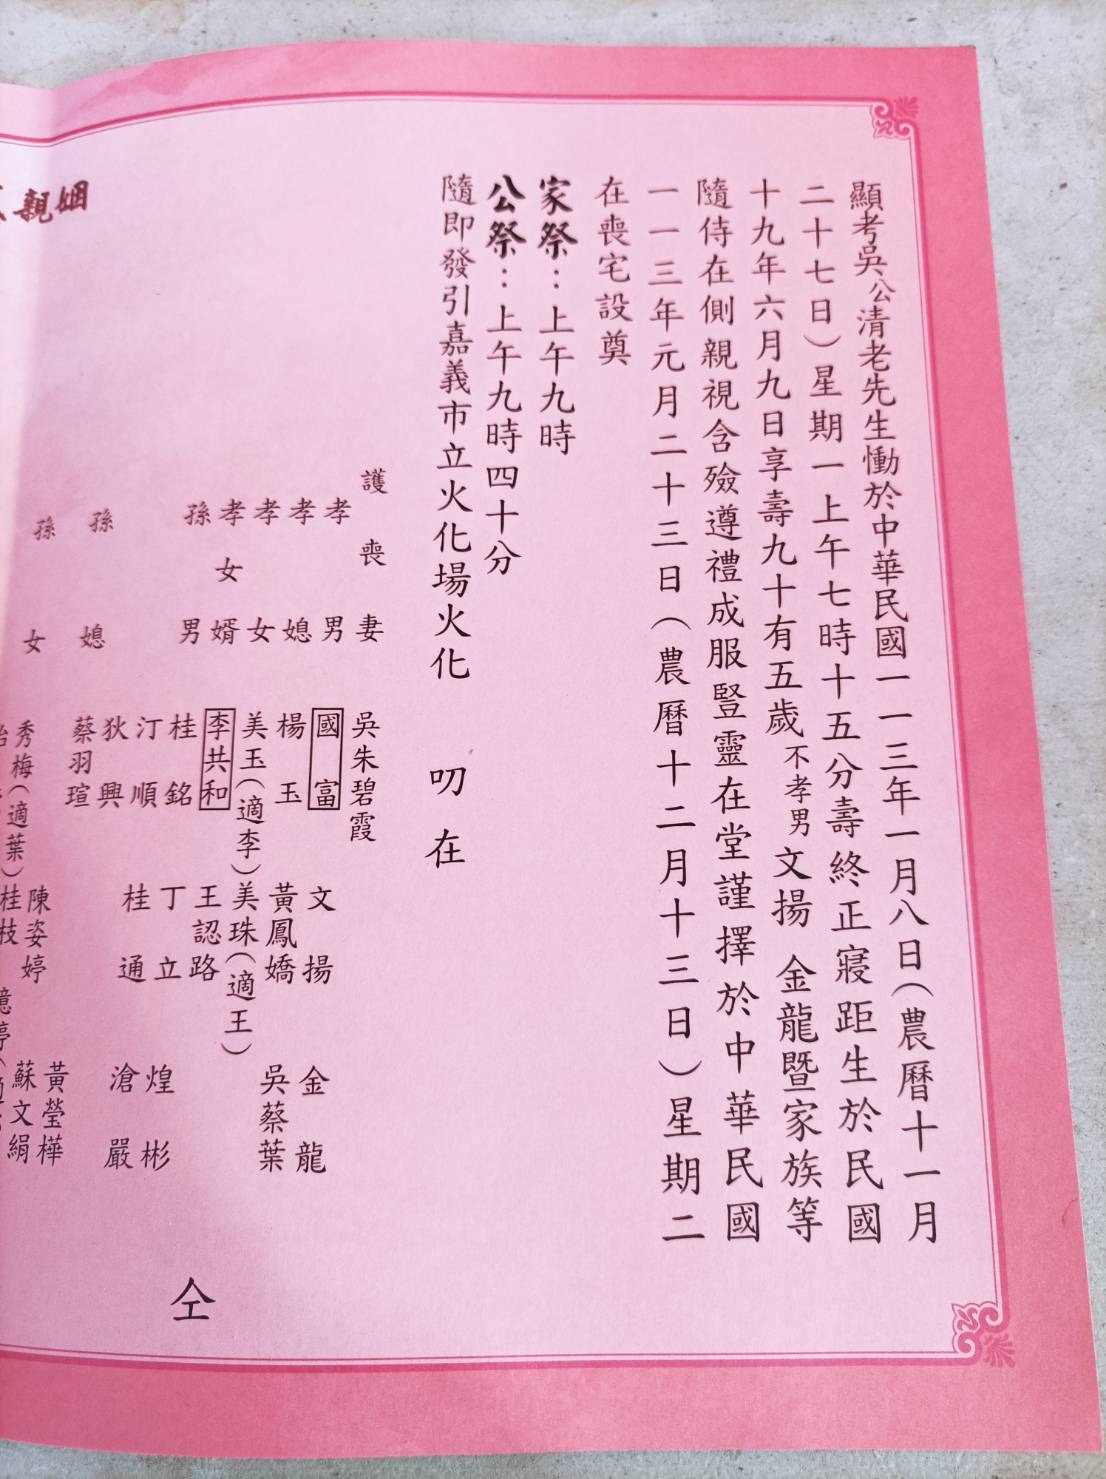 顯考吳公清老先生慟於中華民國一一三年一月八日（農曆十一月
二十七日）星期一上午七時十五分壽終正寢距生於民國
十九年六月九日享壽九十有五歲不孝男文揚 金龍暨家族等
隨侍在側親視含殮遵禮成服豎靈在堂謹擇於中華民國
一一三年元月二十三日（農曆十二月十三日）星期二
在喪宅設奠
家祭：上午九時
公祭：上午九時四十分
隨即發引嘉義市立火化場火化 叨在
護喪妻 吳朱碧霞
孝男 國富 文揚 金龍
孝媳 楊玉 黃鳳嬌 吳蔡葉
孝女 美玉（適李） 美珠（適王）
孝女婿 李共和 王認路
孫男 桂銘 丁立 煌彬
汀順 桂通 滄嚴
狄興
孫媳 蔡羽瑄 陳姿婷 黃瑩樺
蘇文絹
孫女 秀梅（適葉） 桂枝
仝
姻親